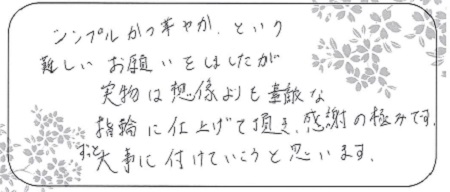 シンプルかつ華やか、という
難しいお願いをしましたが
実物は想像よりも素敵な
指輪に仕上げて頂き、感謝の極みです。
ずっと大事に付けていこうと思います。